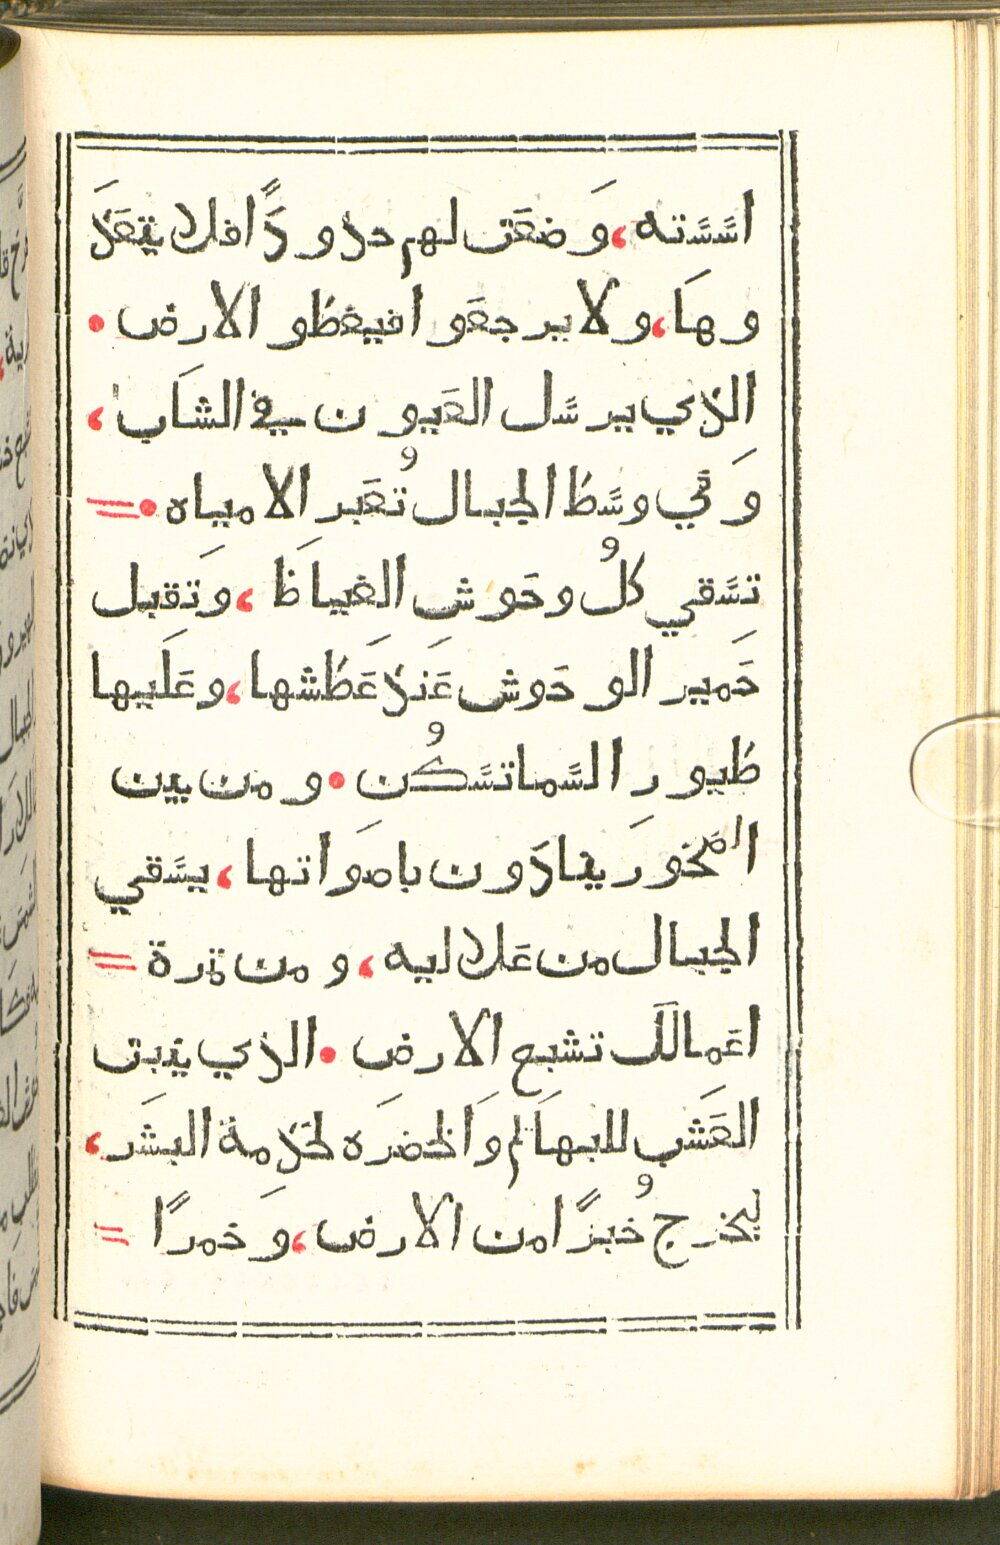 اسَسَته، وَضعَت لهم حدودًا فلا يتعَدَ
وهَا، ولا يرجعَوا فيغطو الارض •
الذي يرسَل العَيون في الشَاب،
وَفي وسَط الجبال تُعَبر الامياه • =
تسَقي كلُ وحَوش الغياظَ، وَتقبل
حَمير الوحَوش عَند عَطَشها، وعَلَيها
طيور السَما تسَكُن • ومن بين
الصَخور يناَدون باصوَاتها، يسَقي
الجبال من عَلاليه، ومن تمرة =
اعَمالَك تشبع الارض • الذي ينبت
العَشب للبهَائم وَالخضرَه لخدمة البشَر،
ليخرج خُبزًا من الارض، وَخمرًا =